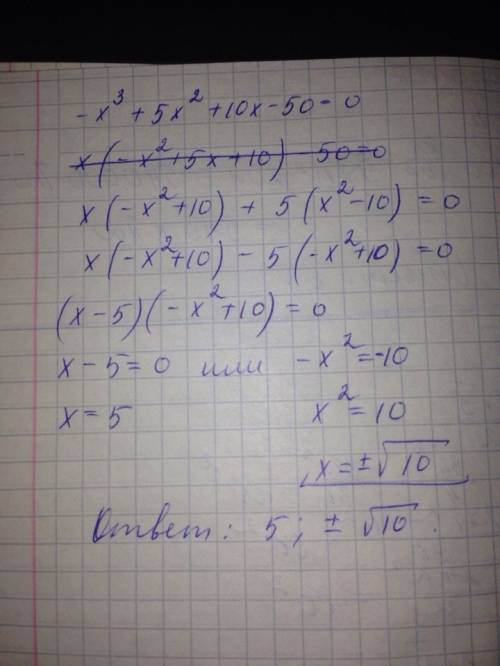 -x³ + 5x² + 10x - 50 = 0
x(-x² + 5x + 10) - 50 = 0
x(-x² + 10) + 5(x² - 10) = 0
x(-x² + 10) - 5(-x² + 10) = 0
(x - 5)(-x² + 10) = 0
x - 5 = 0 или -x² = -10
x = 5 x² = 10
x = ±√10
Ответ: 5; ±√10.